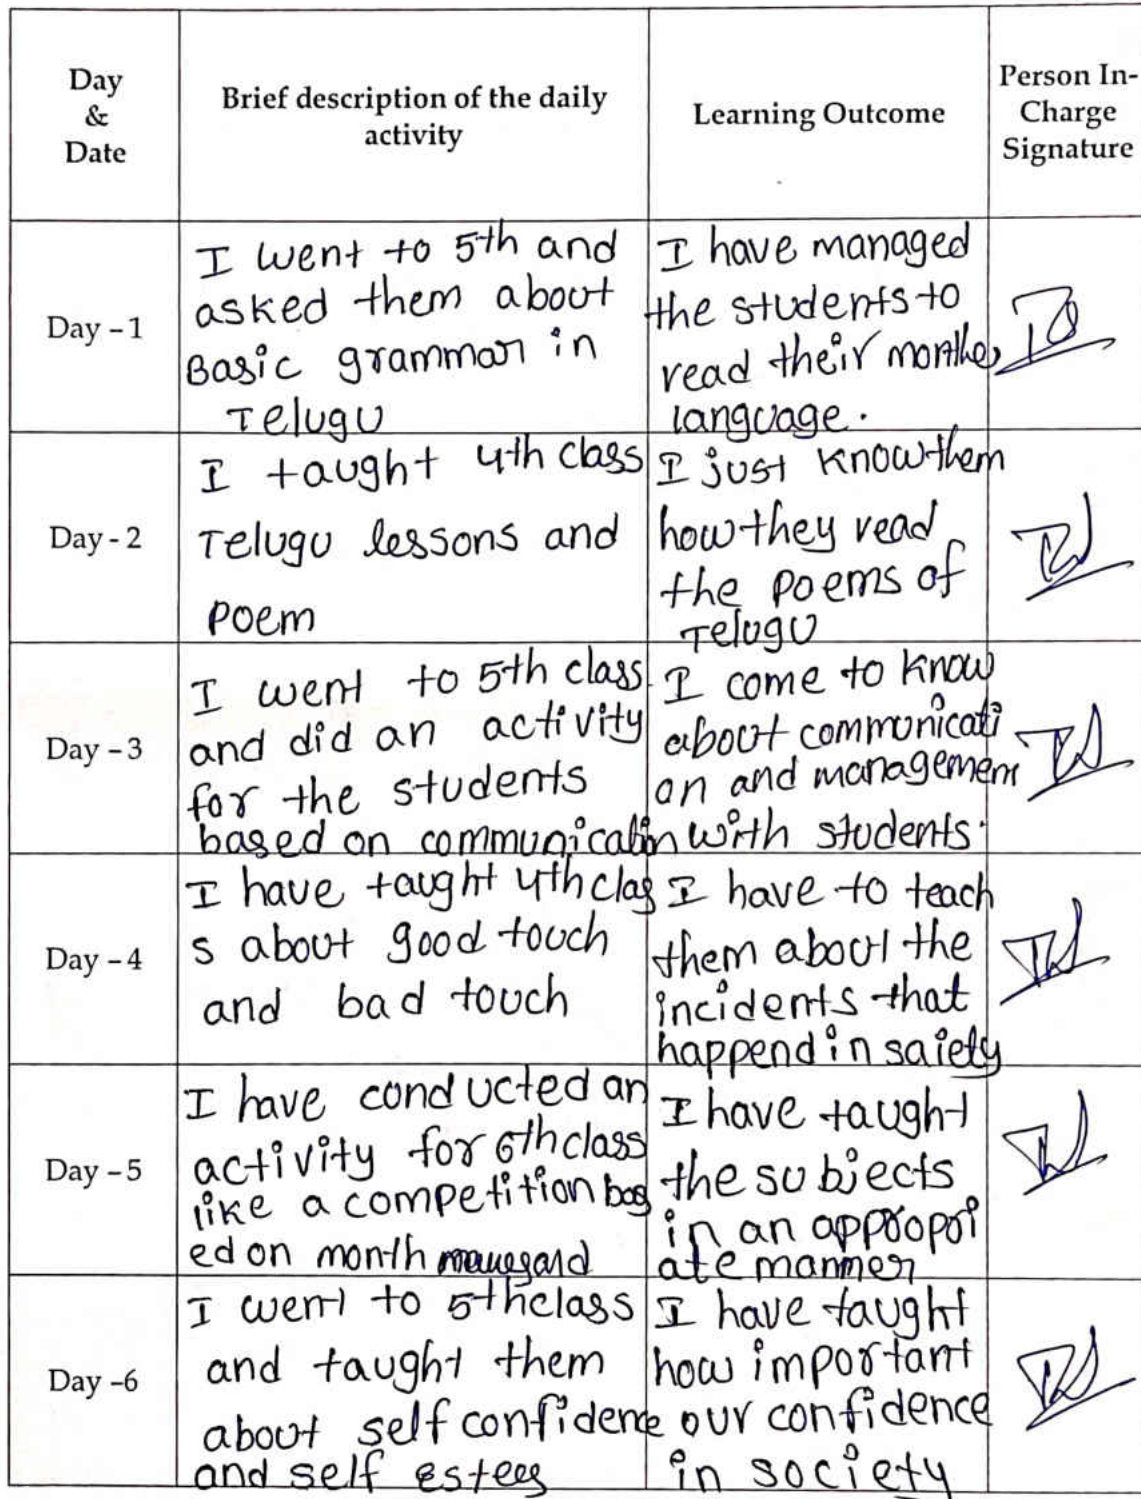 Day
&
Date
Brief description of the daily
activity
Learning Outcome
Person In-
Charge
Signature
Day - 1
I went to 5th and
asked them about
Basic grammar in
Telugu
I have managed
the students to
read their monther
language.
Day - 2
I taught 4th class
Telugu lessons and
Poem
I just know them
how they read
the Poems of
Telugu
Day - 3
I went to 5th class
and did an activity
for the students
based on communicatin
I come to know
about communicati
on and management
with students.
Day - 4
I have taught 4th clas
s about good touch
and bad touch
I have to teach
them about the
incidents that
happend in saiety
Day - 5
I have conducted an
activity for 6th class
like a competition bas
ed on month
I have taught
the subjects
in an appropri
ate manner
Day -6
I went to 5th class
and taught them
about self confidence
and self
I have taught
how important
our confidence
in society